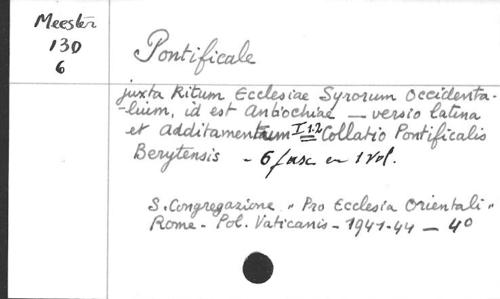 Meester
130
6
Pontificale
juxta Ritum Ecclesiae Syrorum Occidenta-
-lium, id est Antiochiae — versio latina
et additamentum I 1.2 Collatio Pontificalis
Berytensis - 6 fasc en 1 vol.
S. Congregazione "Pro Ecclesia Orientali"
Rome - Pol. Vaticanis - 1941-44 — 4º